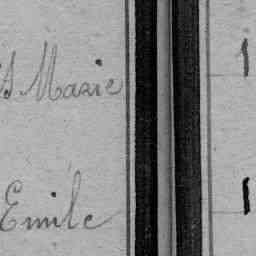 Marie 1
Emile 1